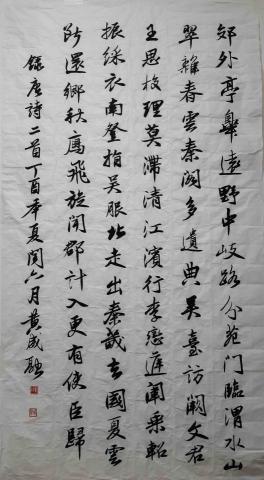 郊外亭皋远野中岐路分苑门临渭水山
翠离春云秦阁多遗典吴台访阙文君
王思校理莫滞清江濆行李恋庭闱乘轺
振綵衣南登指吴服北走出秦畿去国夏云
断还乡秋雁飞旋闻郡计入更有使臣归
录唐诗二首丁酉年夏闰六月黄成